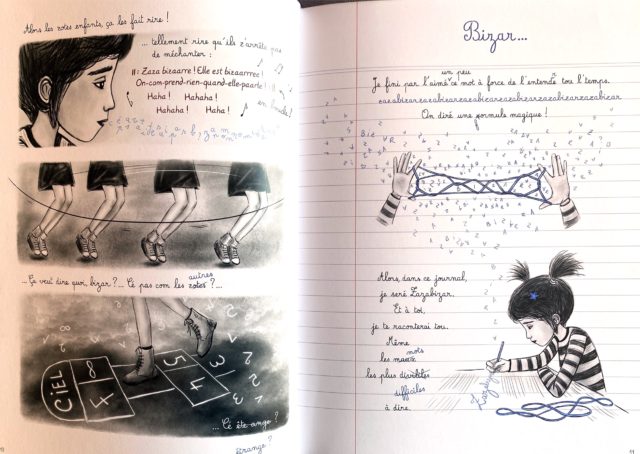 Alors les zotes enfants, ça les fait rire !
... tellement rire qu'ils z'arrête pas
de méchanter :
II : Zaza bizaarre ! Elle est bizaarrree !
On-com-prend-rien-quand-elle-paarle ! : II
Haha ! Hahaha !
Hahaha ! Haha !
en boucle !
... Ça veut dire quoi, bizar ?... Cé pas com les zotes ?...
autres
CIEL
8
7
5
4
3
... Cé éte-ange ?
étrange ?
Bizar...
un peu
Je fini par l'aimé ce mot à force de l'entende tou l'temps.
r
zazabizarzazabizarzazabizarzazabizarzazabizarzazabizar
On diré une formule magique !
Alors, dans ce journal,
je seré Zazabizar.
Et à toi,
je te raconterai tou.
Même
mots
les maux
les plus divitiles
difficiles
à dire.
Zazabizar